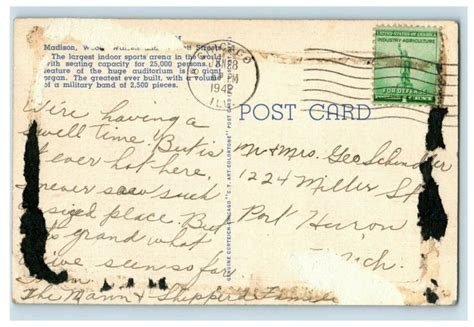 Madison, Wood, Warren and Streets
The largest indoor sports arena in the world
with seating capacity for 25,000 persons. A
feature of the huge auditorium is a giant
organ. The greatest ever built, with a volume
of a military band of 2,500 pieces.
CHICAGO
PM
1942
ILL
UNITED STATES OF AMERICA
INDUSTRY AGRICULTURE
FOR DEFENSE
POST CARD
GENUINE CURTEICH-CHICAGO "C.T. ART-COLORTONE" POST CARD
We're having a
swell time. But is
it ever hot here,
I never saw such
a sized place. But
it's grand what
we've seen so far.
The Mann & Shepperd Families
Mr & Mrs. Geo Schindler
1224 Miller St
Port Huron
Mich.